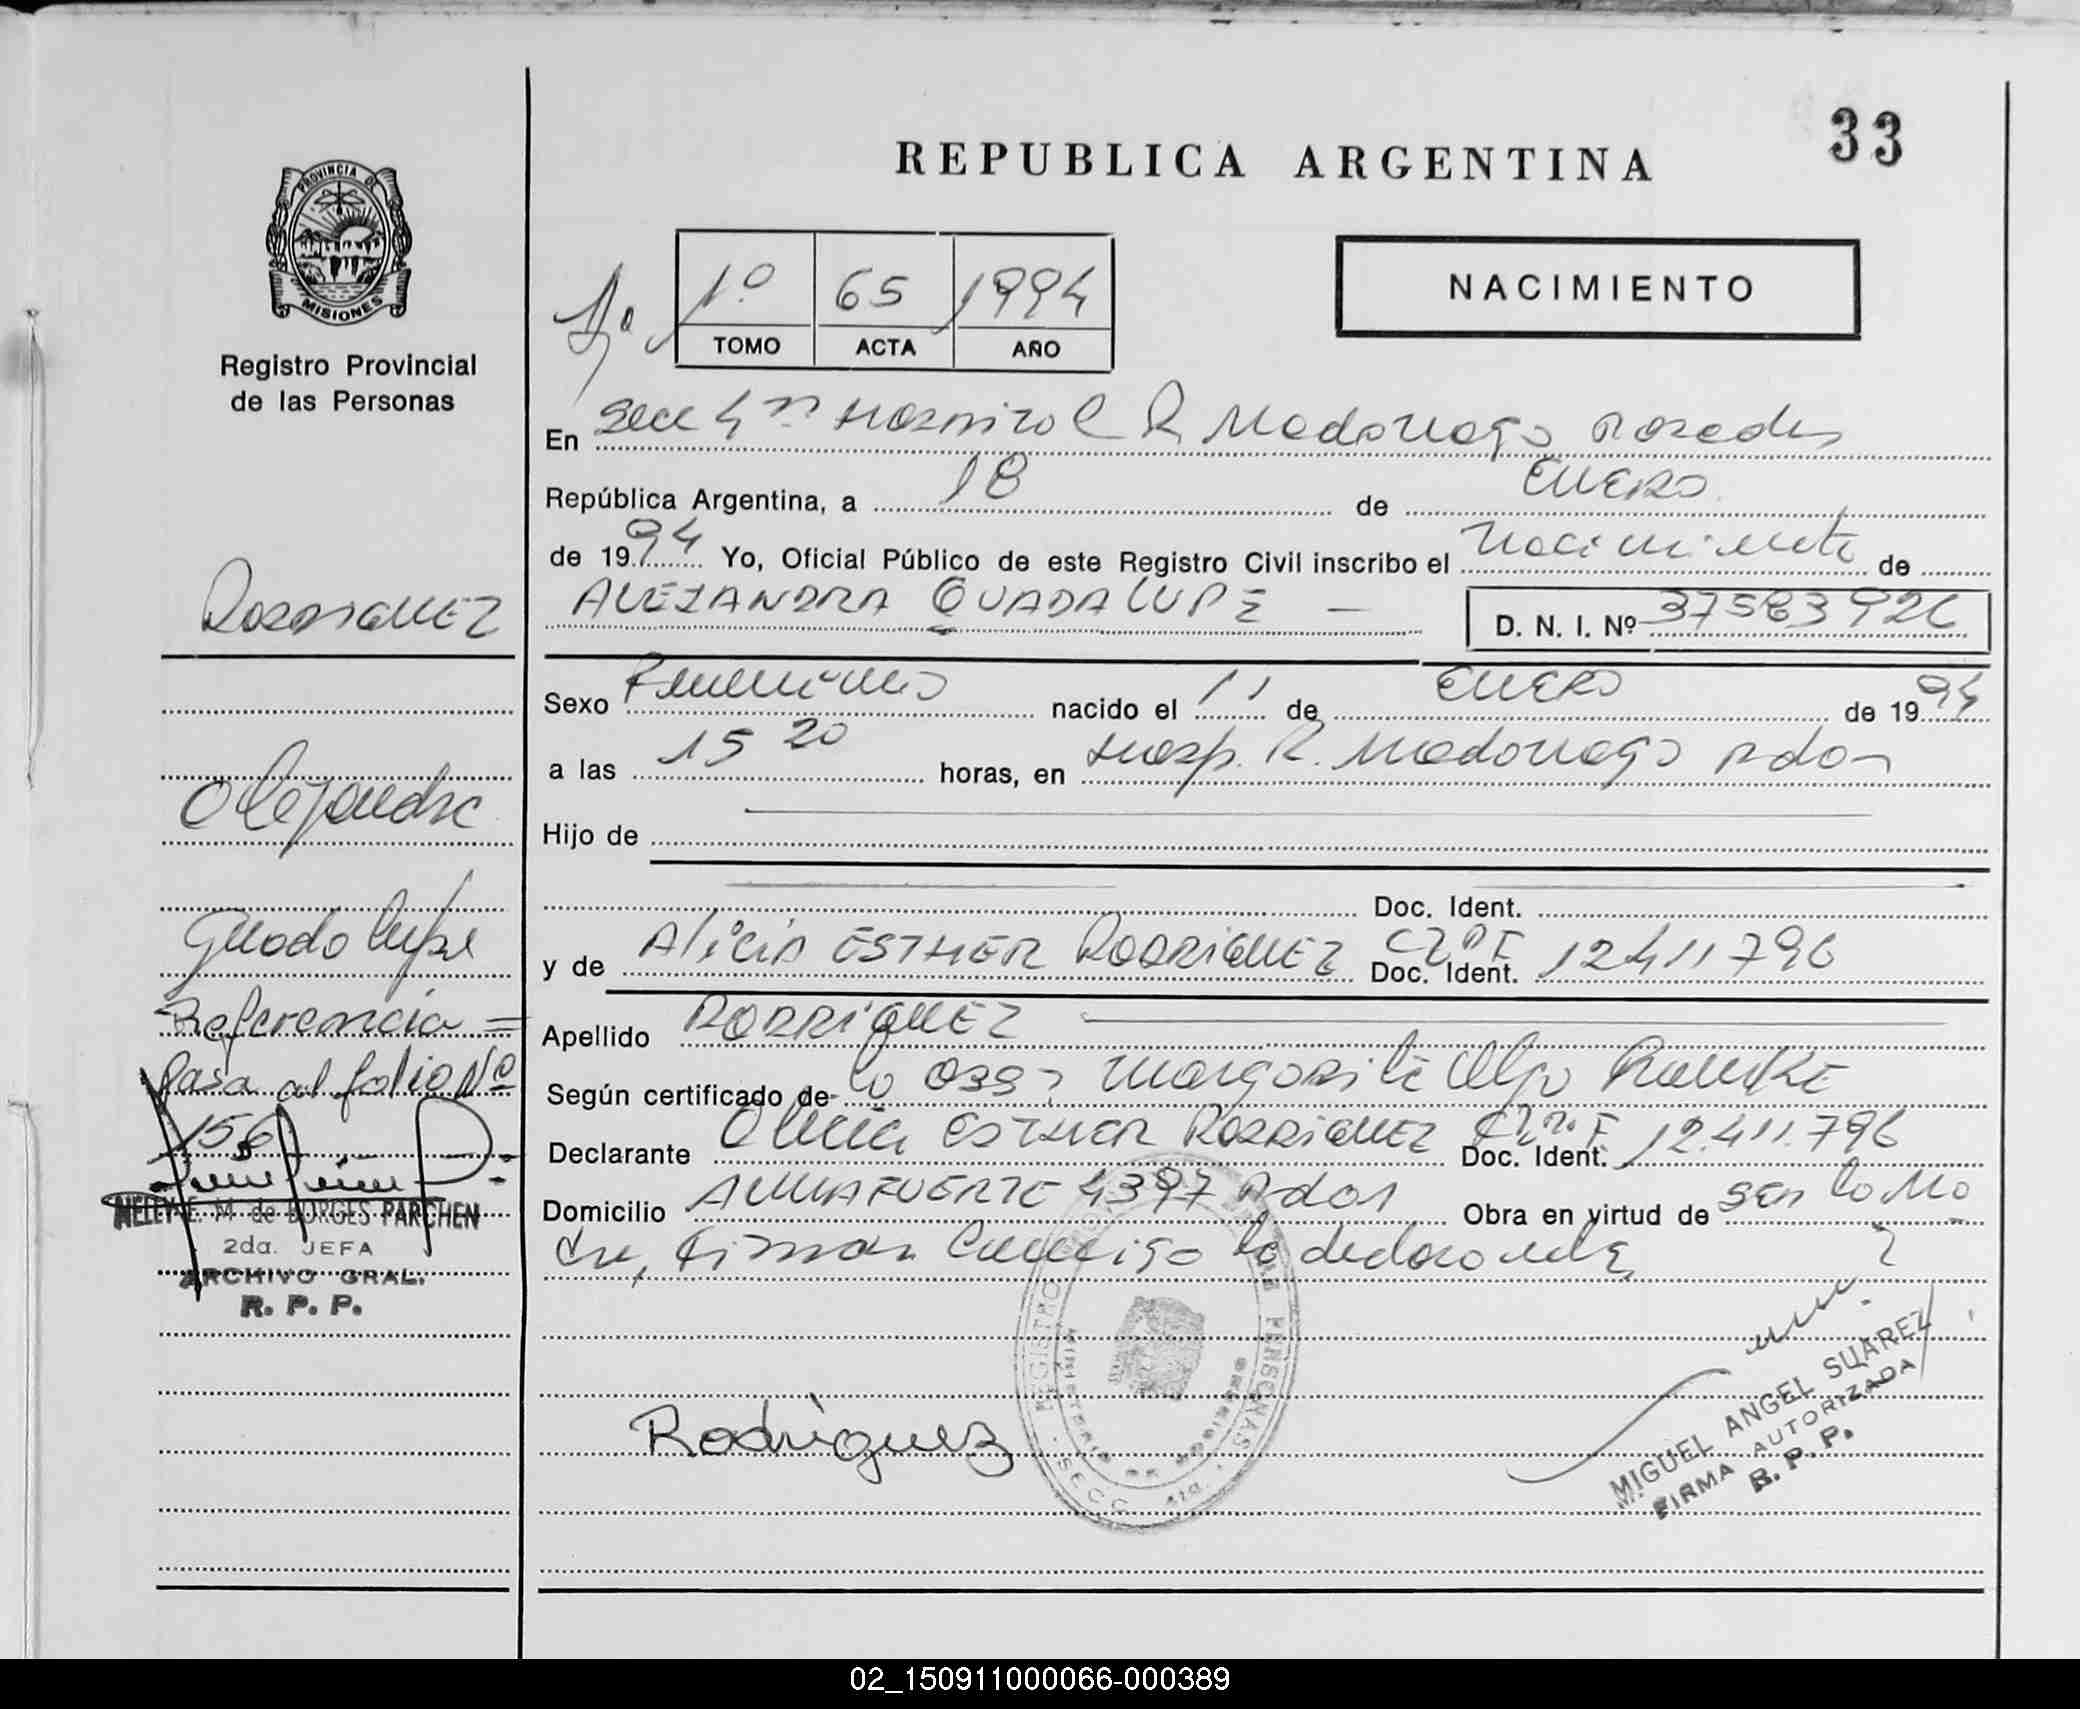 33
REPUBLICA ARGENTINA
PROVINCIA DE
MISIONES
Registro Provincial
de las Personas
1º 65 1994
TOMO ACTA AÑO
NACIMIENTO
En Secc 4ta Hospital R Madariaga Posadas
República Argentina, a 18 de ENERO
de 1994 Yo, Oficial Público de este Registro Civil inscribo el Nacimiento de
ALEJANDRA GUADALUPE — D. N. I. Nº 37583926
Sexo Femenino nacido el 11 de ENERO de 1994
a las 15 20 horas, en Hosp. R. Madariaga Pdas
Hijo de
Doc. Ident.
y de Alicia ESTHER RODRIGUEZ Doc. Ident. 12411796
Apellido RODRIGUEZ
Según certificado de la Margarita Olga
Declarante Alicia ESTHER RODRIGUEZ Doc. Ident. 12.411.796
Domicilio ALMAFUERTE 4397 Pdas Obra en virtud de ser la Ma
dre, Firman Conmigo la declarante
RODRIGUEZ
Alejandra
Guadalupe
Referencia =
Pasa al folio Nº
156
NELLY E. M. de BORGES PARCHEN
2da. JEFA
ARCHIVO GRAL.
R. P. P.
Rodriguez
REGISTRO PERSONAS SECC
MINISTERIO DE GOBIERNO
MIGUEL ANGEL SUAREZ
FIRMA AUTORIZADA
R. P. P.
02_150911000066-000389